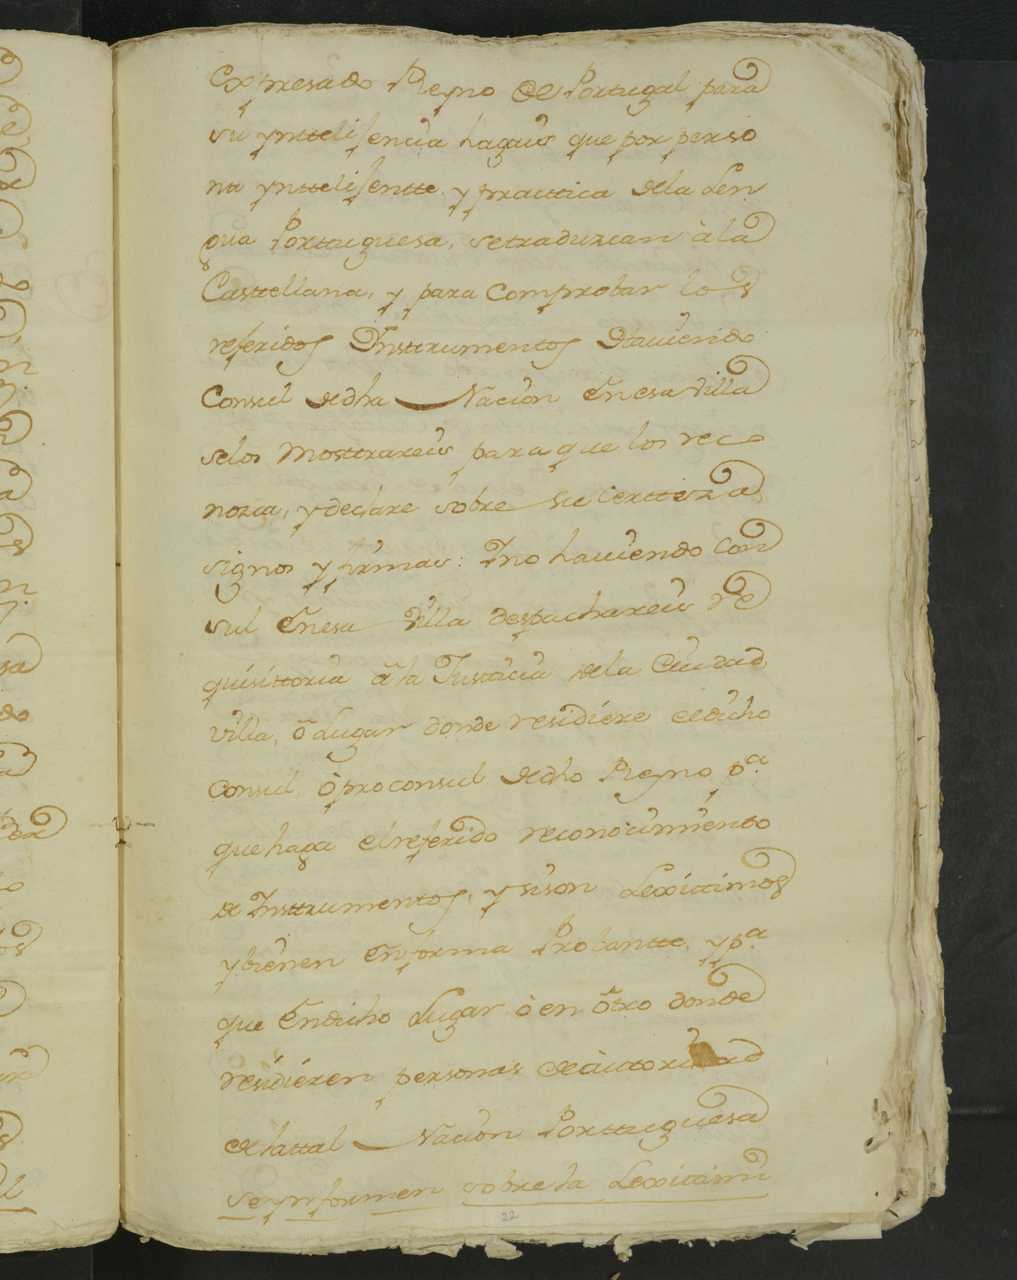 expresado Reyno de Portugal para
su ynttelijencia hagais que por perso
na ynttelijentte y practtica de la Len
gua Portuguesa, se traduzcan à la
Castellana, y para comprobar los
referidos Ynstrumentos Haviendo
Consul de dha Nacion en esa Villa
se los mosttrareis para que los reco
nozca, y declare sobre su certteza
signos y firmas: Y no haviendo Con
sul en esa Villa despachareis re
quisittoria â la Justicia de la Ciudad
villa, ô Lugar donde residiere el dicho
Consul, ò proconsul de dho Reyno pa.
que haga el referido reconocimiento
de Insttrumentos, y si son Lexittimos
y bienen en forma Probantte, y pa.
que en dicho Lugar ò en ôtro donde
residieren personas de àutoridad
de la ttal Nacion Porttuguesa
se ynformen sobre la Lexitimi
22